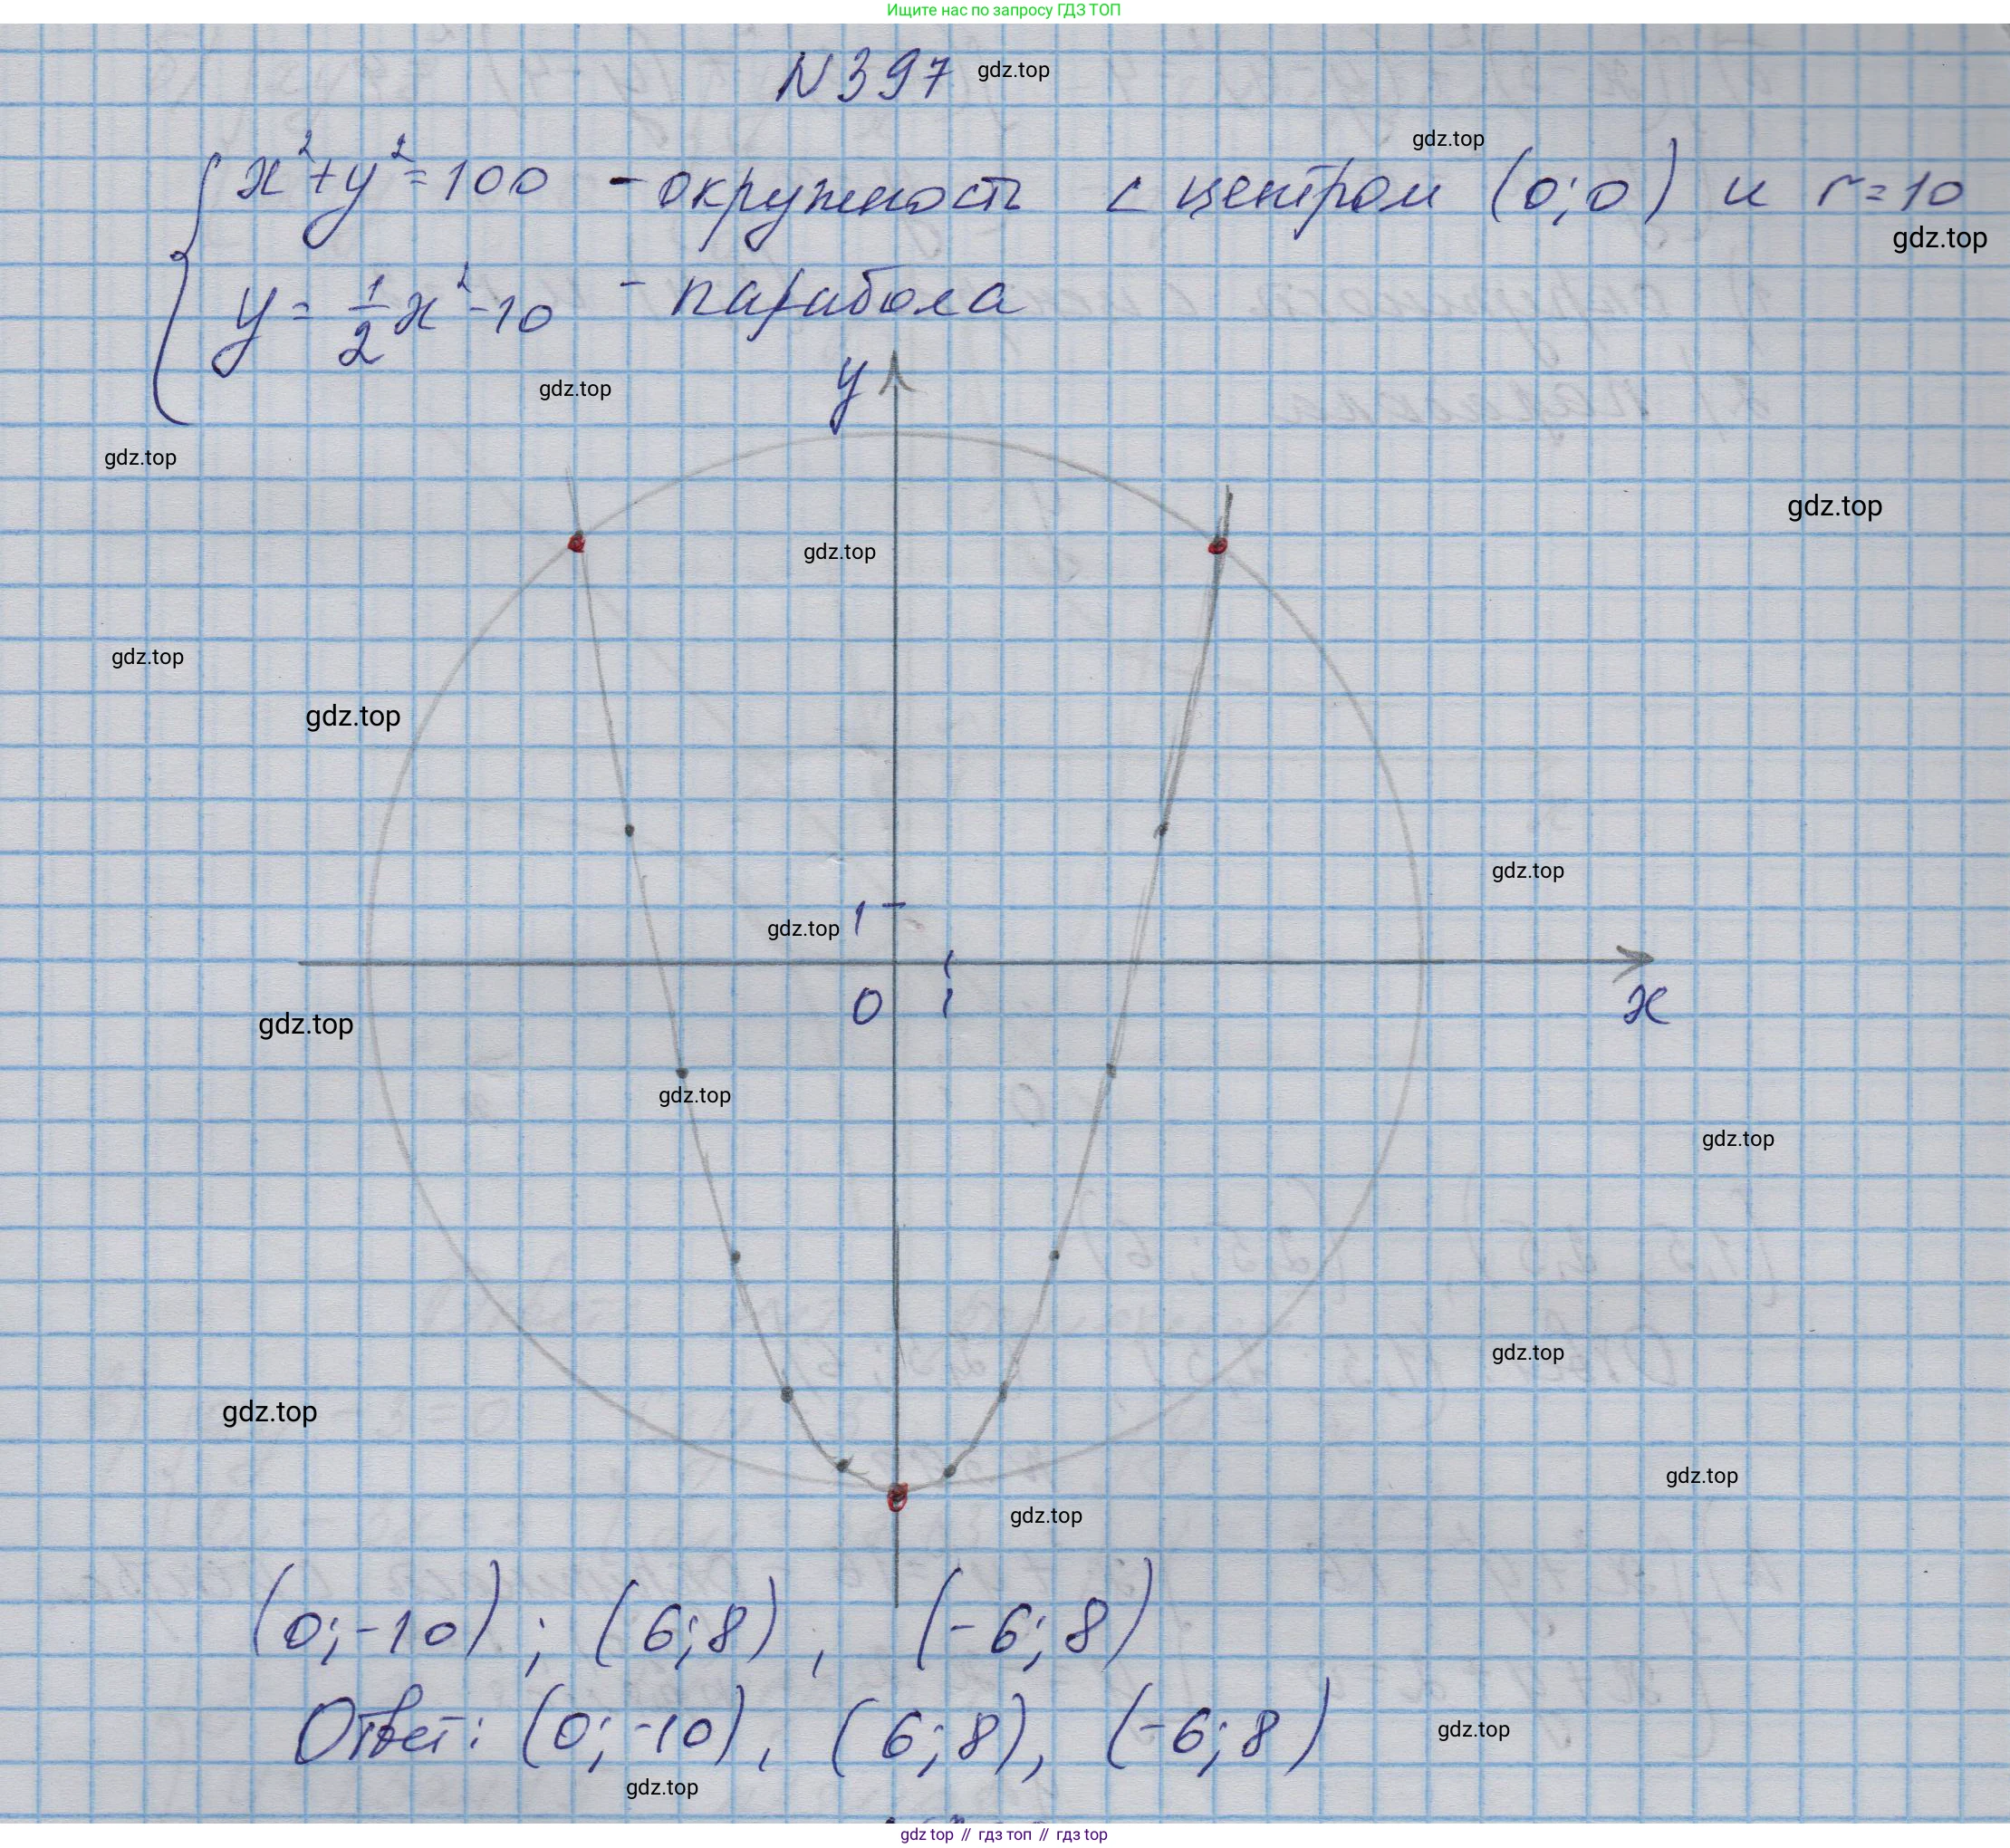 Ищите нас по запросу ГДЗ ТОП
N 397 gdz.top
gdz.top
{ x²+y²=100 - окружность с центром (0;0) и r=10
gdz.top
y = 1/2 x² - 10 - парабола
y
gdz.top
gdz.top
gdz.top
gdz.top
gdz.top
gdz.top
gdz.top
1
gdz.top
0 1 x
gdz.top
gdz.top
gdz.top
gdz.top
gdz.top
gdz.top
gdz.top
(0;-10) ; (6;8) , (-6;8)
Ответ: (0;-10), (6;8), (-6;8)
gdz.top
gdz.top
gdz top // гдз топ // гдз top